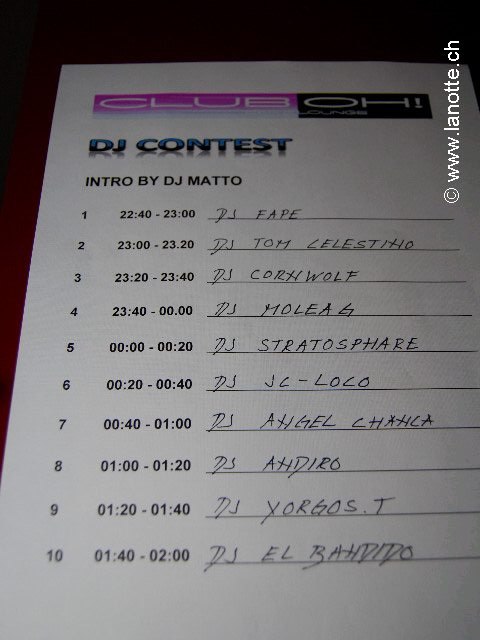 CLUB OH!
LOUNGE
DJ CONTEST
INTRO BY DJ MATTO
1 22:40 - 23:00 DJ FAPE
2 23:00 - 23.20 DJ TOM CELESTINO
3 23:20 - 23:40 DJ CORNWOLF
4 23:40 - 00.00 DJ MOLEAG
5 00:00 - 00:20 DJ STRATOSPHARE
6 00:20 - 00:40 DJ JC-LOCO
7 00:40 - 01:00 DJ ANGEL CHANCA
8 01:00 - 01:20 DJ ANDIRO
9 01:20 - 01:40 DJ YORGOS.T
10 01:40 - 02:00 DJ EL BANDIDO
© www.lanotte.ch